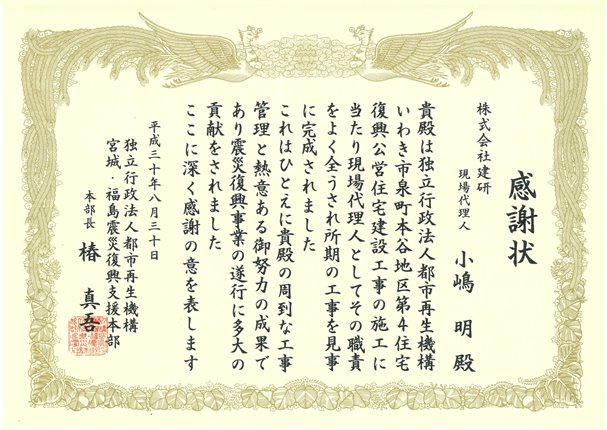 感謝状
株式会社建研
現場代理人
小嶋 明 殿
貴殿は独立行政法人都市再生機構
いわき市泉町本谷地区第4住宅
復興公営住宅建設工事の施工に
当たり現場代理人としてその職責
をよく全うされ所期の工事を見事
に完成されました
これはひとえに貴殿の周到な工事
管理と熱意ある御努力の成果で
あり震災復興事業の遂行に多大の
貢献をされました
ここに深く感謝の意を表します
平成三十年八月三十日
独立行政法人都市再生機構
宮城・福島震災復興支援本部
本部長 椿 真吾